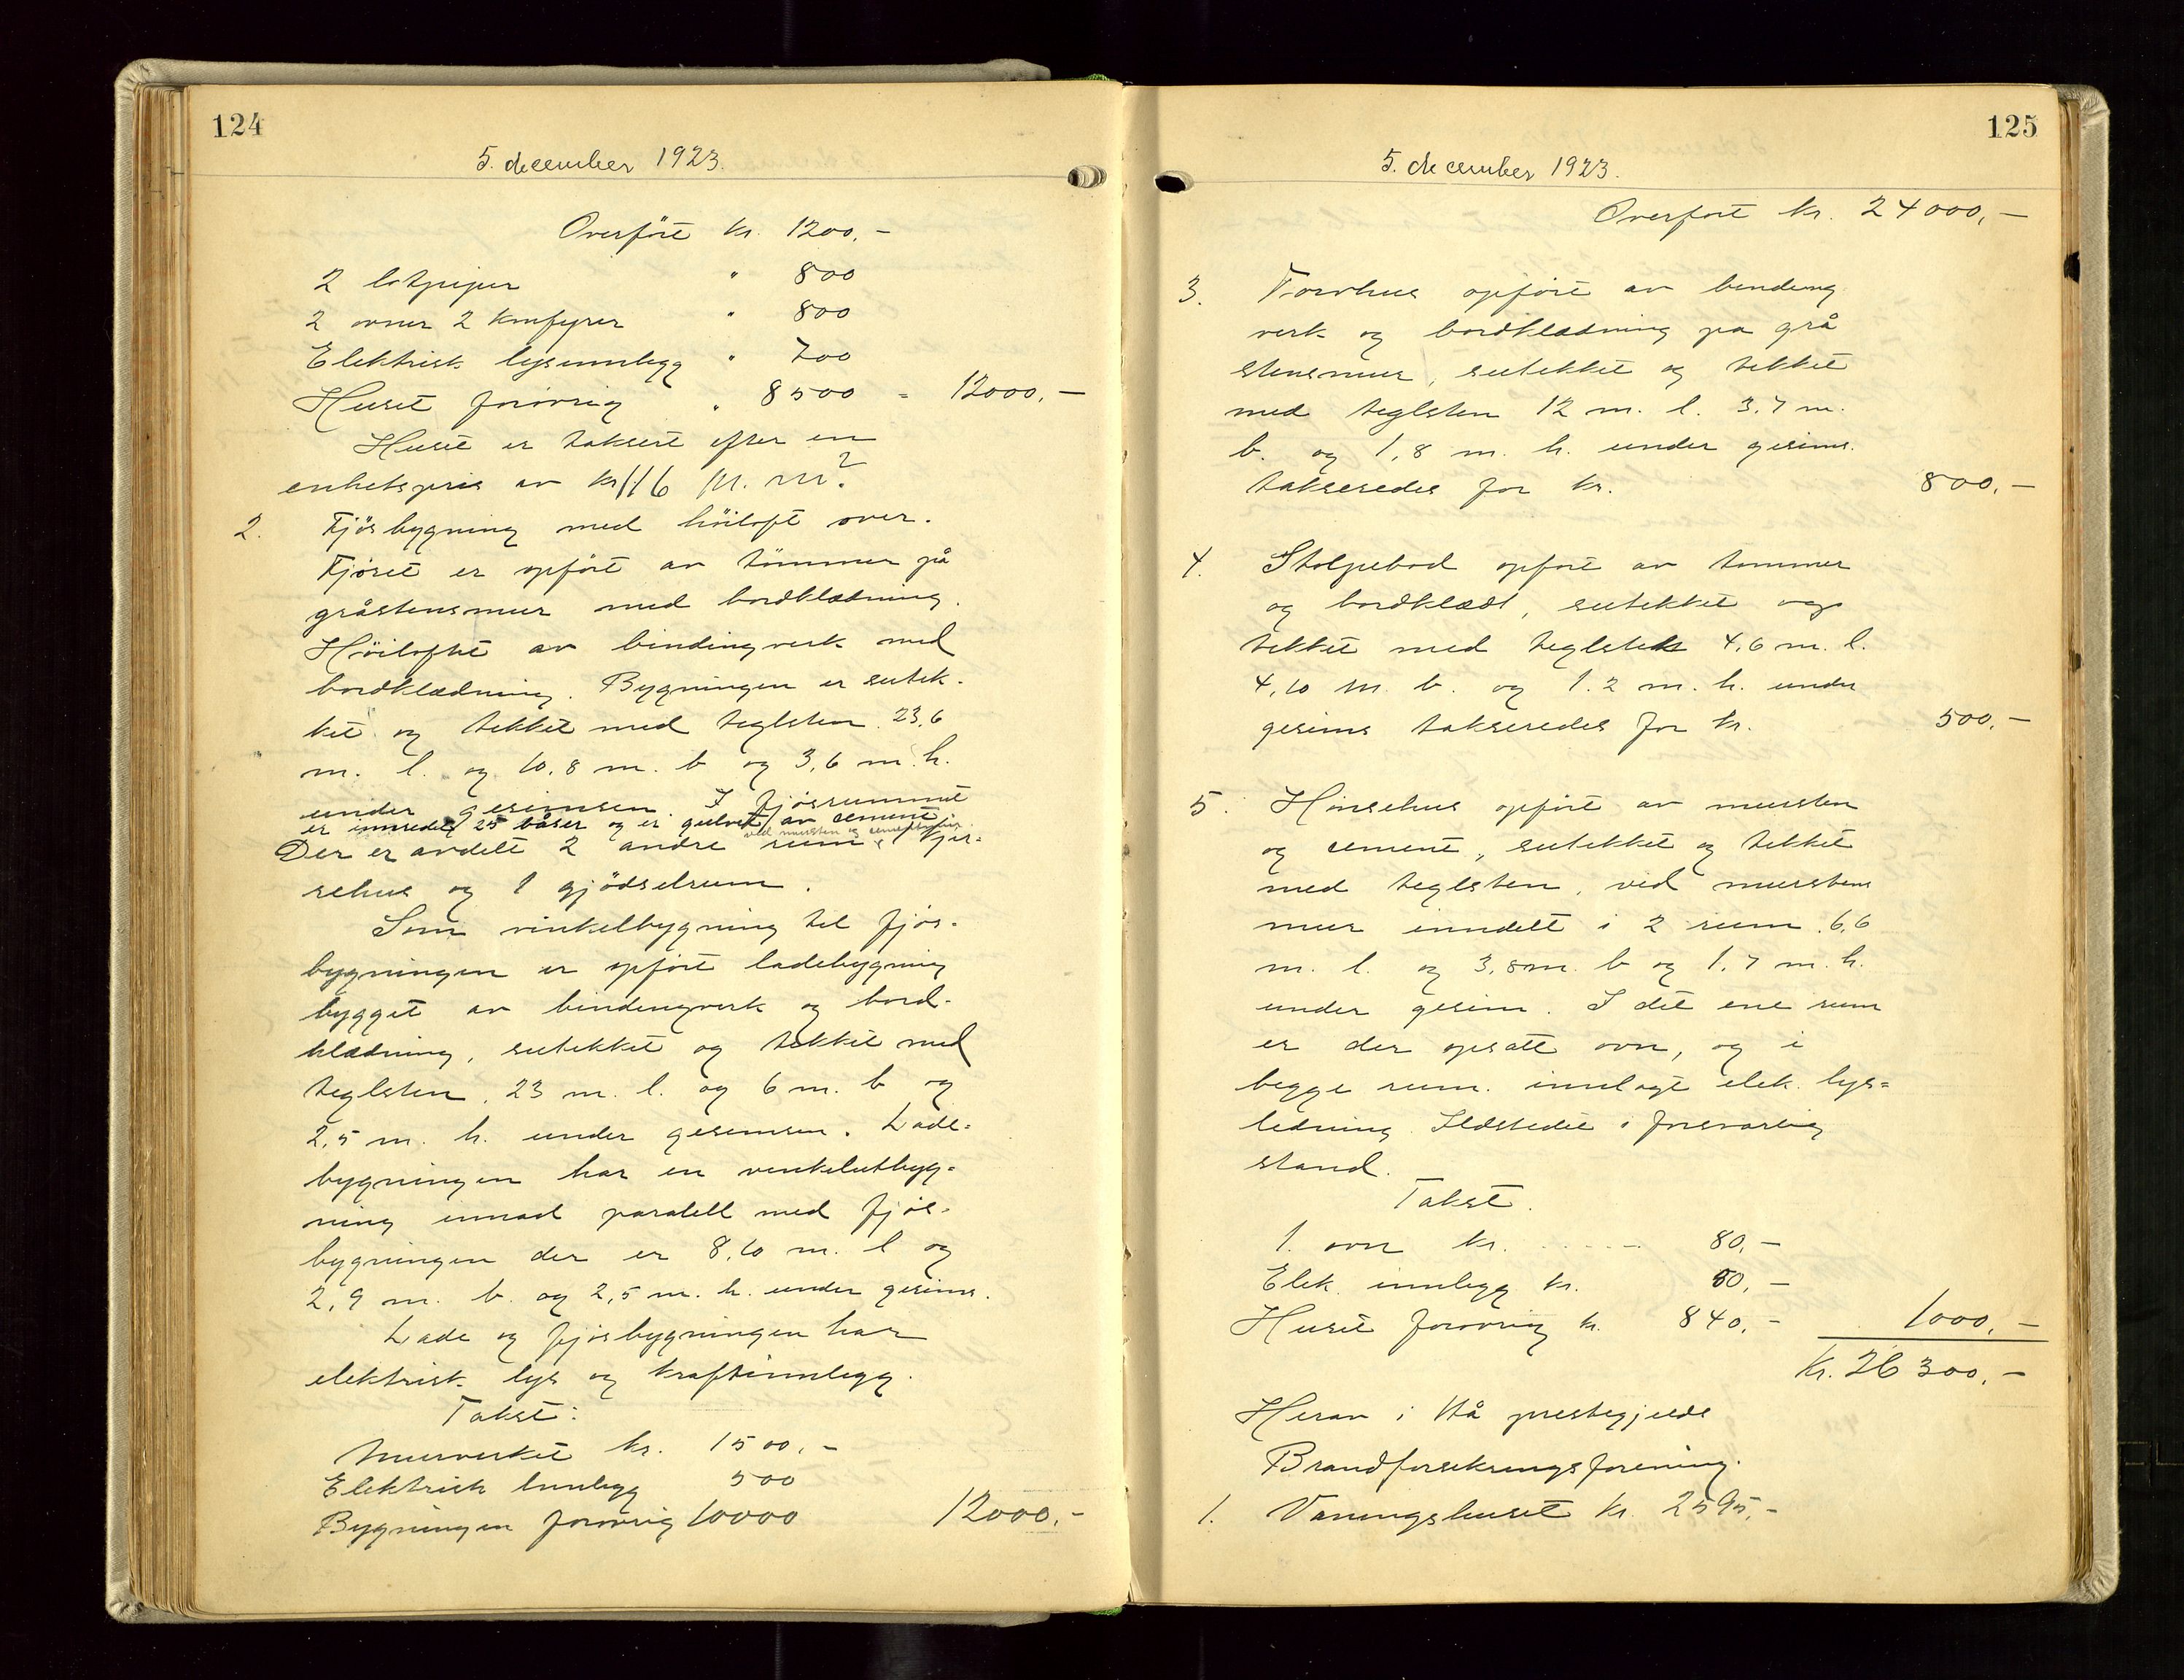 124
5. december 1923.
Overført kr. 1200,-
2 løtpiper " 800
2 ovner 2 komfyrer " 800
Elektrisk lysinnlegg " 700
Huset forøvrig " 8500 = 12000,-
Huset er taksert efter en
enhetspris av kr 116 pr. m².
2. Fjøsbygning med høiloft over.
Fjøset er opført av tømmer på
gråstensmur med bordklædning.
Høiloftet av bindingverk med
bordklædning. Bygningen er sutek-
ket og tekket med teglsten. 23,6
m. l. og 10,8 m. b og 3,6 m. h.
under gesimsen. I fjøsrummet
er innredet 25 båser og er gulvet av cement
ved mursten og
Der er avdelt 2 andre rum,
sehus og 1 gjødselrum.
Som vinkelbygning til fjøs-
bygningen er opført ladebygning
bygget av bindingverk og bord-
klædning, sutekket og tekket med
teglsten. 23 m. l. og 6 m. b og
2,5 m. h. under gesimsen. Lade-
bygningen har en vinkelutbyg-
ning innad paralell med fjøs-
bygningen der er 8,10 m. l og
2,9 m. b. og 2,5 m. h. under gesims.
Lade og fjøsbygningen har
elektrisk lys og kraftinnlegg.
Takst:
Murverket kr. 1500,-
Elektrisk Innlegg 500
Bygningen forøvrig 10000 12000,-
125
5. december 1923.
Overført kr. 24000,-
3. Torvhus opført av binding
verk og bordklædning på grå
stensmur, sutekket og tekket
med teglsten 12 m. l. 3,7 m.
b. og 1,8 m. h. under gesims.
takseredes for kr. 800,-
4. Stolpebod opført av tømmer
og bordklædt, sutekket og
tekket med teglsten 4,6 m. l.
4,10 m. b. og 1.2 m. h. under
gesims takseredes for kr. 500,-
5. Hønsehus opført av mursten
og cement, sutekket og tekket
med teglsten, ved murstens
mur inndelt i 2 rum. 6,6
m. l. og 3,8 m. b og 1,7 m. h.
under gesims. I det ene rum
er der opsatt ovn, og i
begge rum. innlagt elek. lys-
ledning. Ildstedet i forsvarlig
stand.
Takst.
1. ovn kr. ..... 80,-
Elek. innlegg kr. 80,-
Huset forøvrig kr. 840,- 1000,-
Kr. 26300,-
Herav i Hå prestegjelds
Brandforsikringsforening.
1. Våningshuset kr. 2595,-